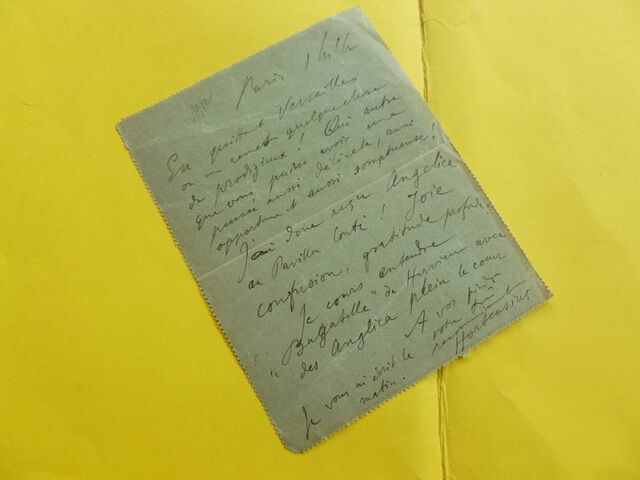 Paris
En quittant Versailles
on me remet quelque chose
de prodigieux ! Qui autre
que vous puisse avoir une
pensée aussi délicate, aussi
opportune et aussi somptueuse,
J'ai donc reçu Angelica
au Pavillon Conti ! Joie
confusion, gratitude profonde,
Je cours entendre
"Bagatelle" de Hervieu avec
des Anglica plein le cœur
A vos pieds
Je vous ai écrit le votre
matin. Hortensius